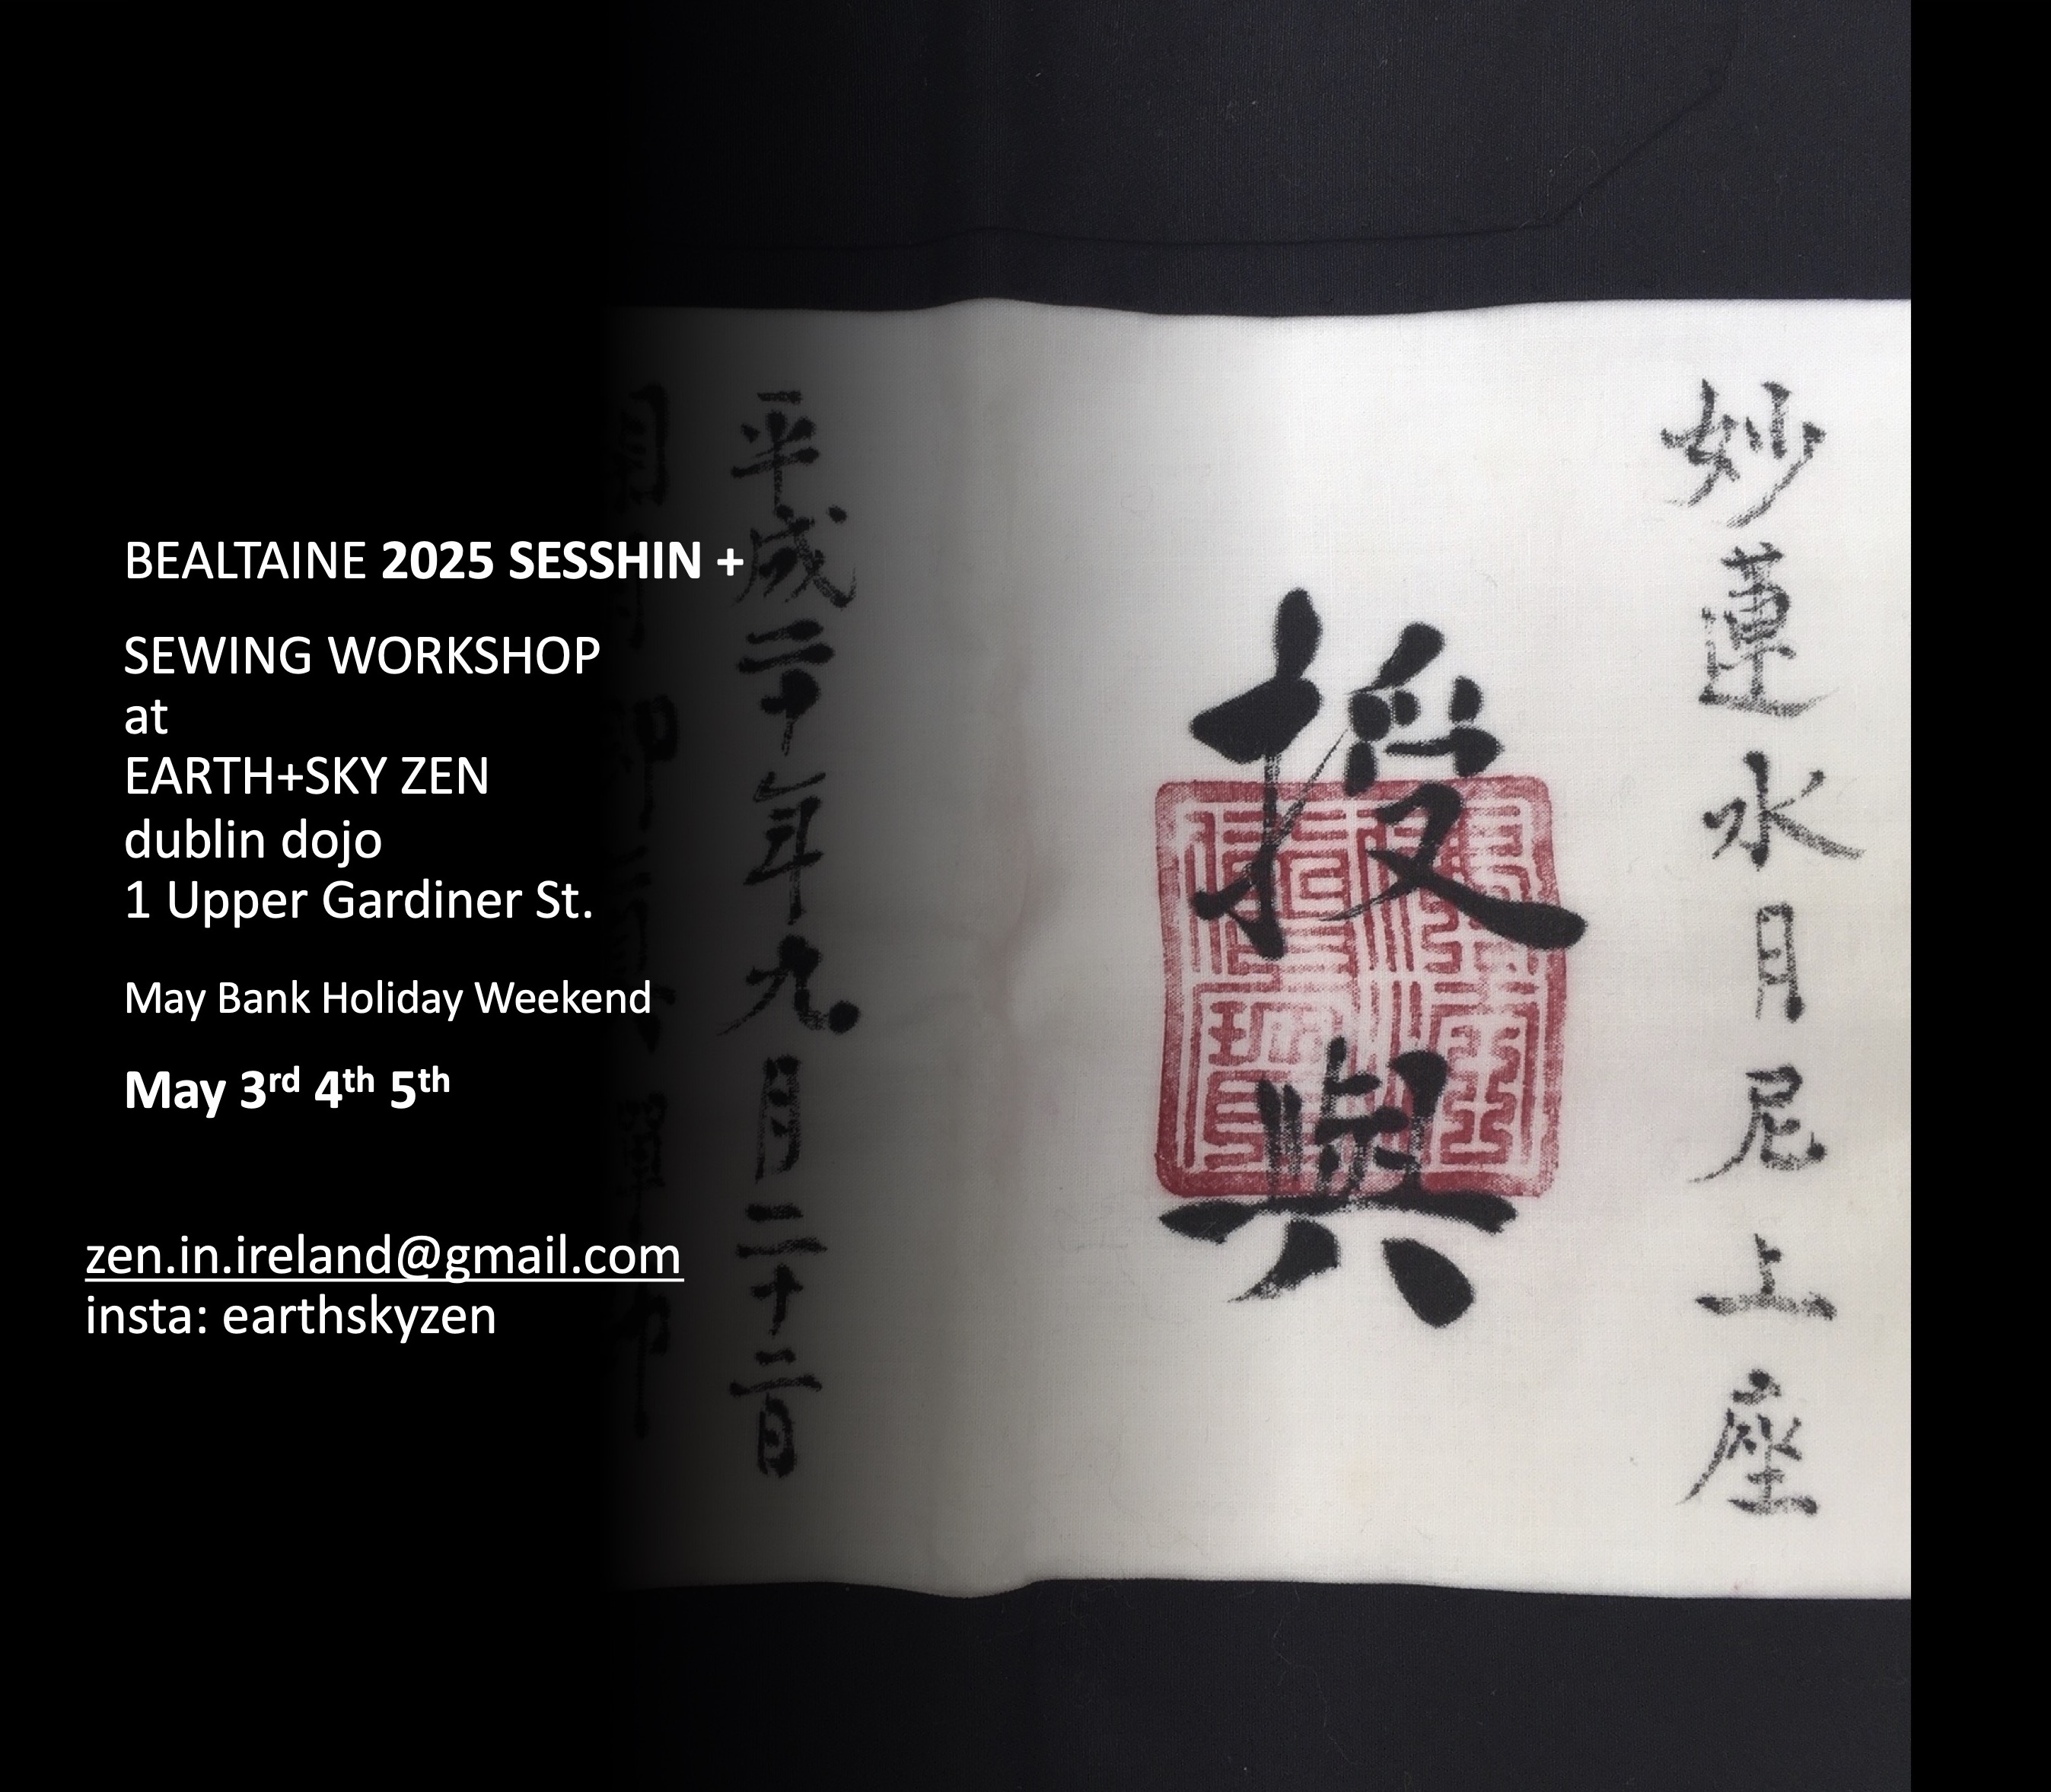 BEALTAINE 2025 SESSHIN +
SEWING WORKSHOP
at
EARTH+SKY ZEN
dublin dojo
1 Upper Gardiner St.
May Bank Holiday Weekend
May 3rd 4th 5th
zen.in.ireland@gmail.com
insta: earthskyzen
妙蓮水月尼上座
授與
平成二十年九月二十二日